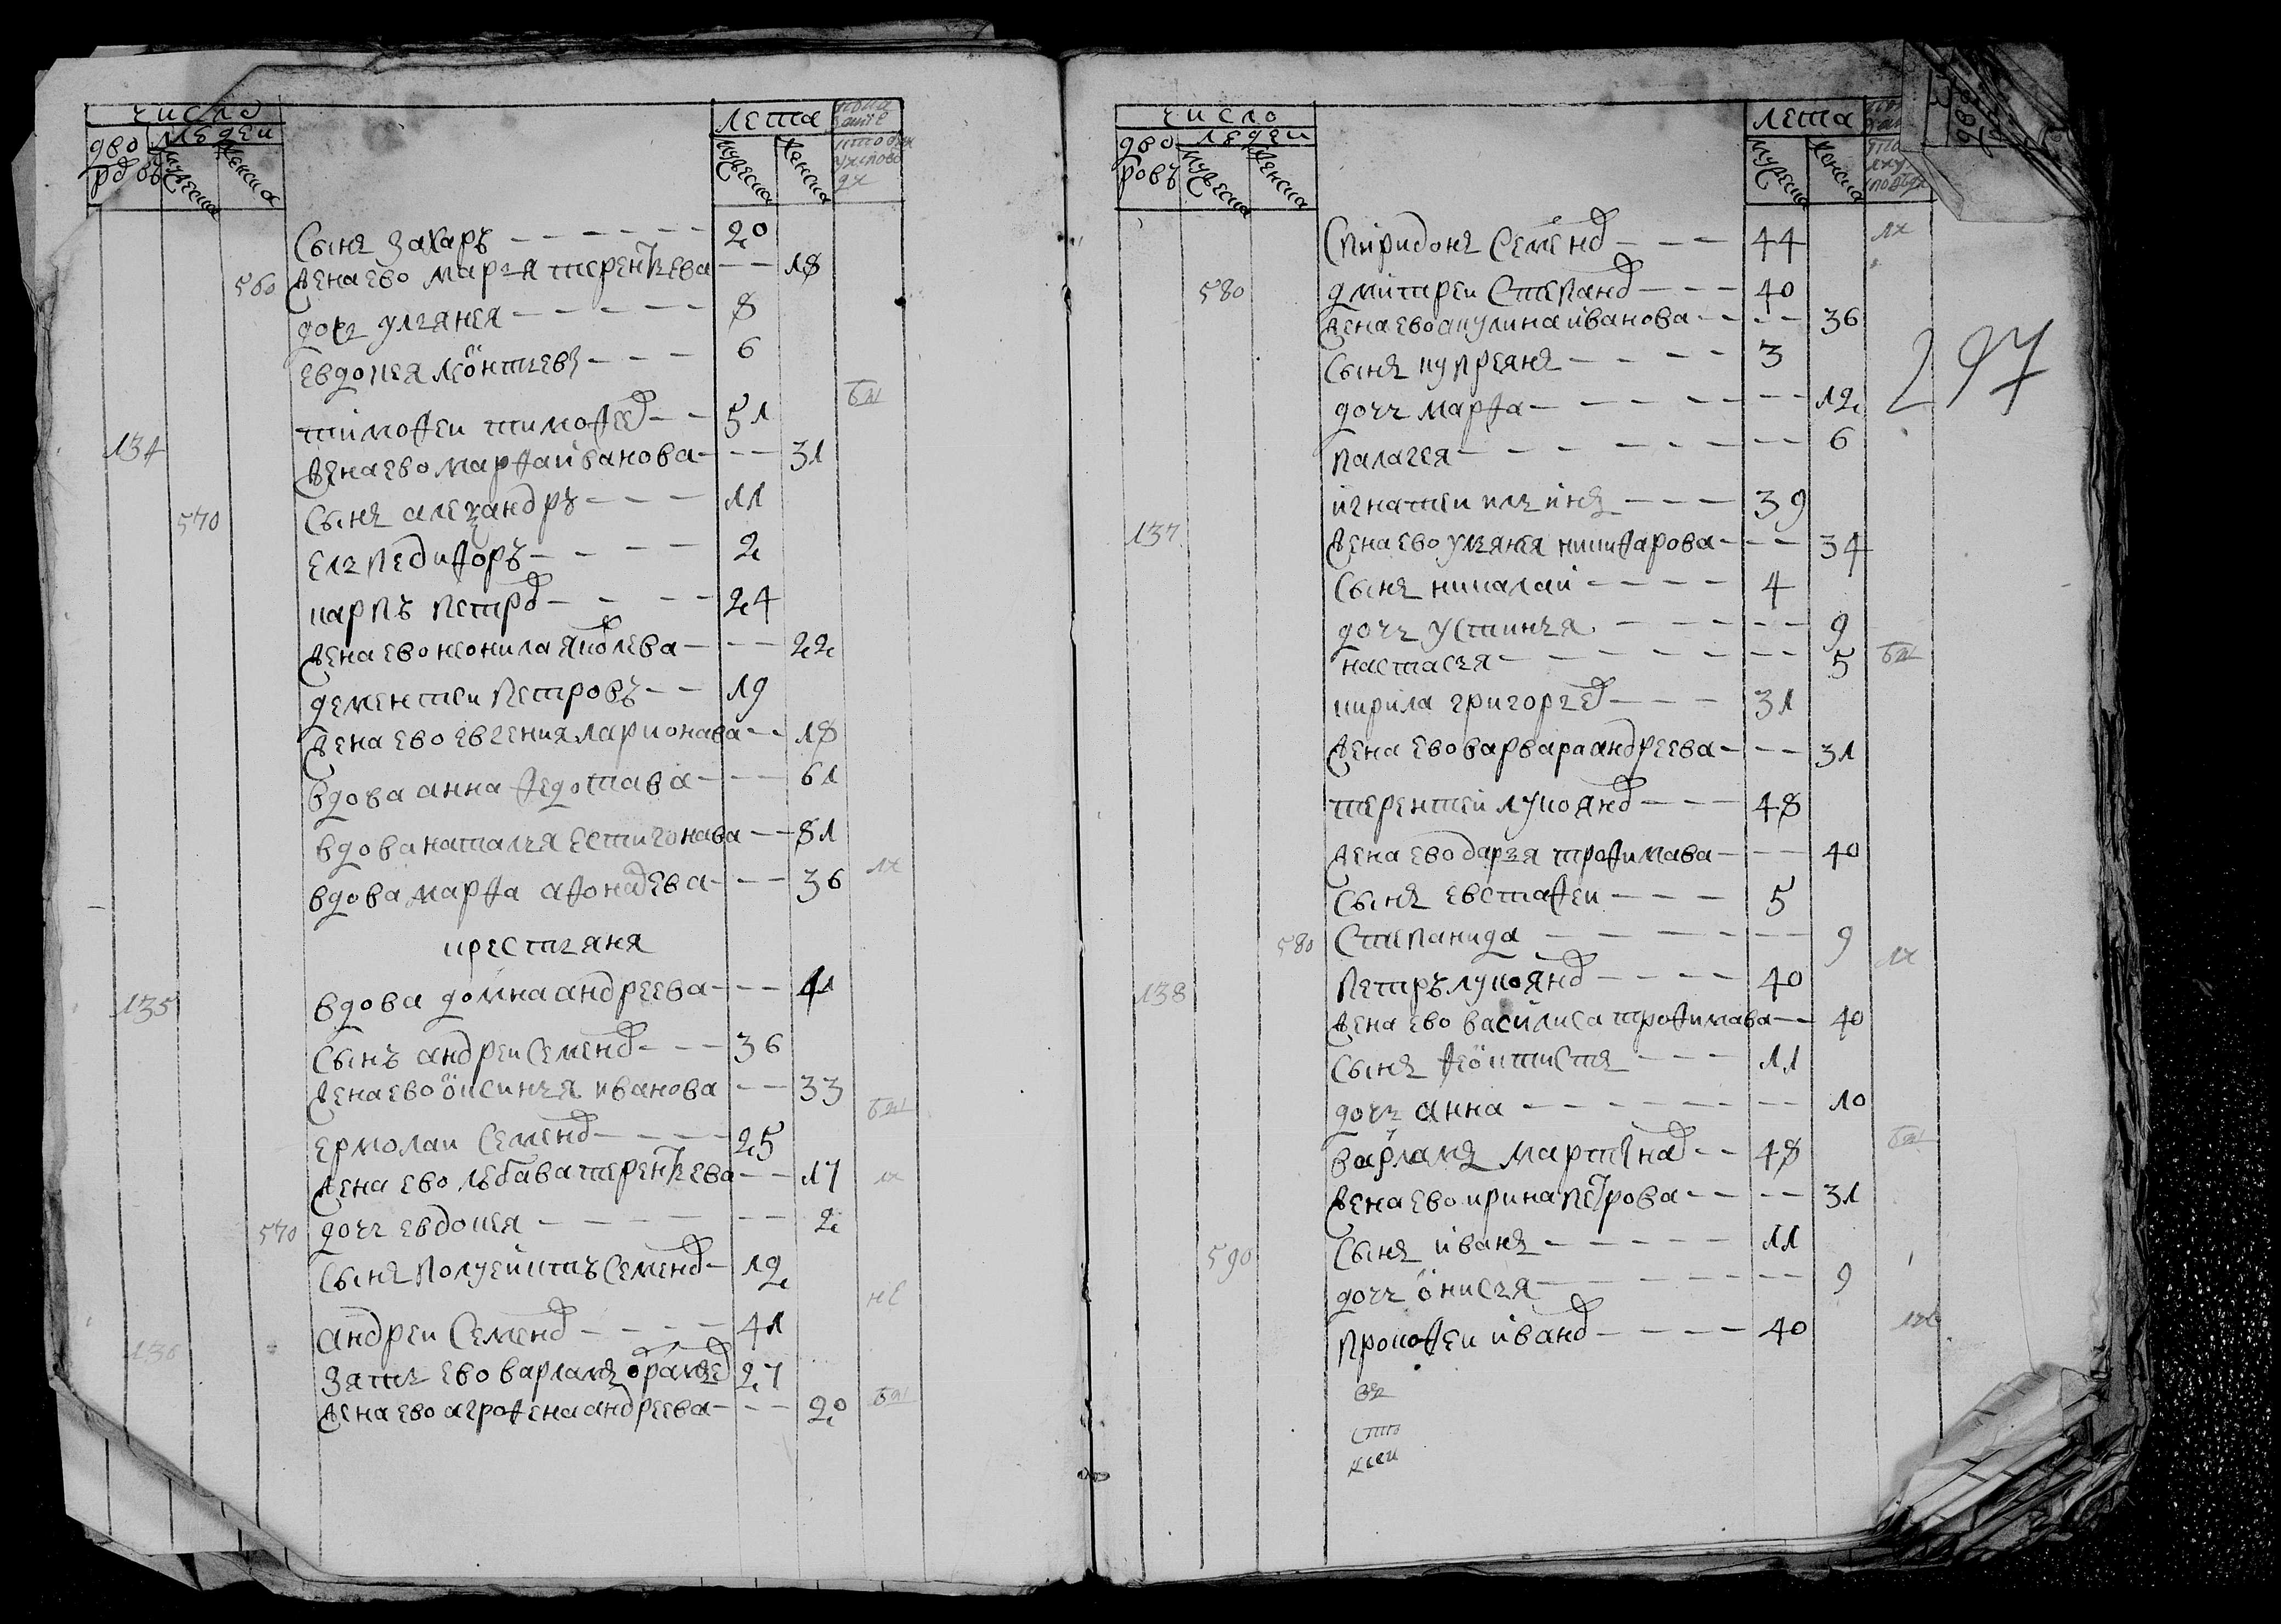 число
людеи
дво
ровъ
мужеска
женска
лета
мужеска
женска
сынъ захаръ - - - - - - 20
560 жена ево марья терентьева - - 18
дочь улья­нея - - - - - 8
евдокея леонтьевъ - - - 6
тимофеи тимофеев - - 51
134 жена ево марфа иванова - - - 31
570 сынъ александръ - - - 11
ельпедифоръ - - - - 2
карпъ петров - - - - 24
жена ево неонила яковлева - - - 22
дементеи петровъ - - 19
жена ево евгения ларионава - - 18
вдова анна федотава - - - 61
вдова наталья естигонава - - 81
вдова марфа афонасева - - - 36
крестьяня
135 вдова домна андреева - - - 41
сынъ андреи семенов - - - 36
жена ево оксинья иванова - - 33
ермолаи семенов - - - - 25
жена ево любава терентьева - - 17
570 дочь евдокея - - - - - - - 2
сынъ полуеиктъ семенов - 19
андреи семенов - - - - 41
зять ево варламъ 27
жена ево агрофена андреева - - - 20
число
людеи
дво
ровъ
мужеска
женска
лета
мужеска
женска
297
спиридонъ семенов - - - 44
580 дмитреи степанов - - - 40
жена ево акулина иванова - - - - 36
сынъ купреянъ - - - - 3
дочь марфа - - - - - - - - 12
палагея - - - - - - - - 6
игнатеи ильинъ - - - 39
137 жена ево ульянея никифарова - - - 34
сынъ никалаи - - - - 4
дочь устинья - - - - - - 9
настасья - - - - - - - - 5
кирила григорьев - - - 31
жена ево варвара андреева - - - 31
терентеи лукоянов - - - 48
жена ево дарья трофимава - - - 40
сынъ евстафеи - - - 5
580 степанида - - - - - - - 9
138 петръ лукоянов - - - - 40
жена ево василиса трофимава - - 40
сынъ феоктистъ - - - 11
дочь анна - - - - - - - - 10
варламъ мартинов - - 48
жена ево ирина петрова - - - - 31
590 сынъ иванъ - - - - - - 11
дочь онисья - - - - - - - - 9
прокофеи иванов - - - - 40